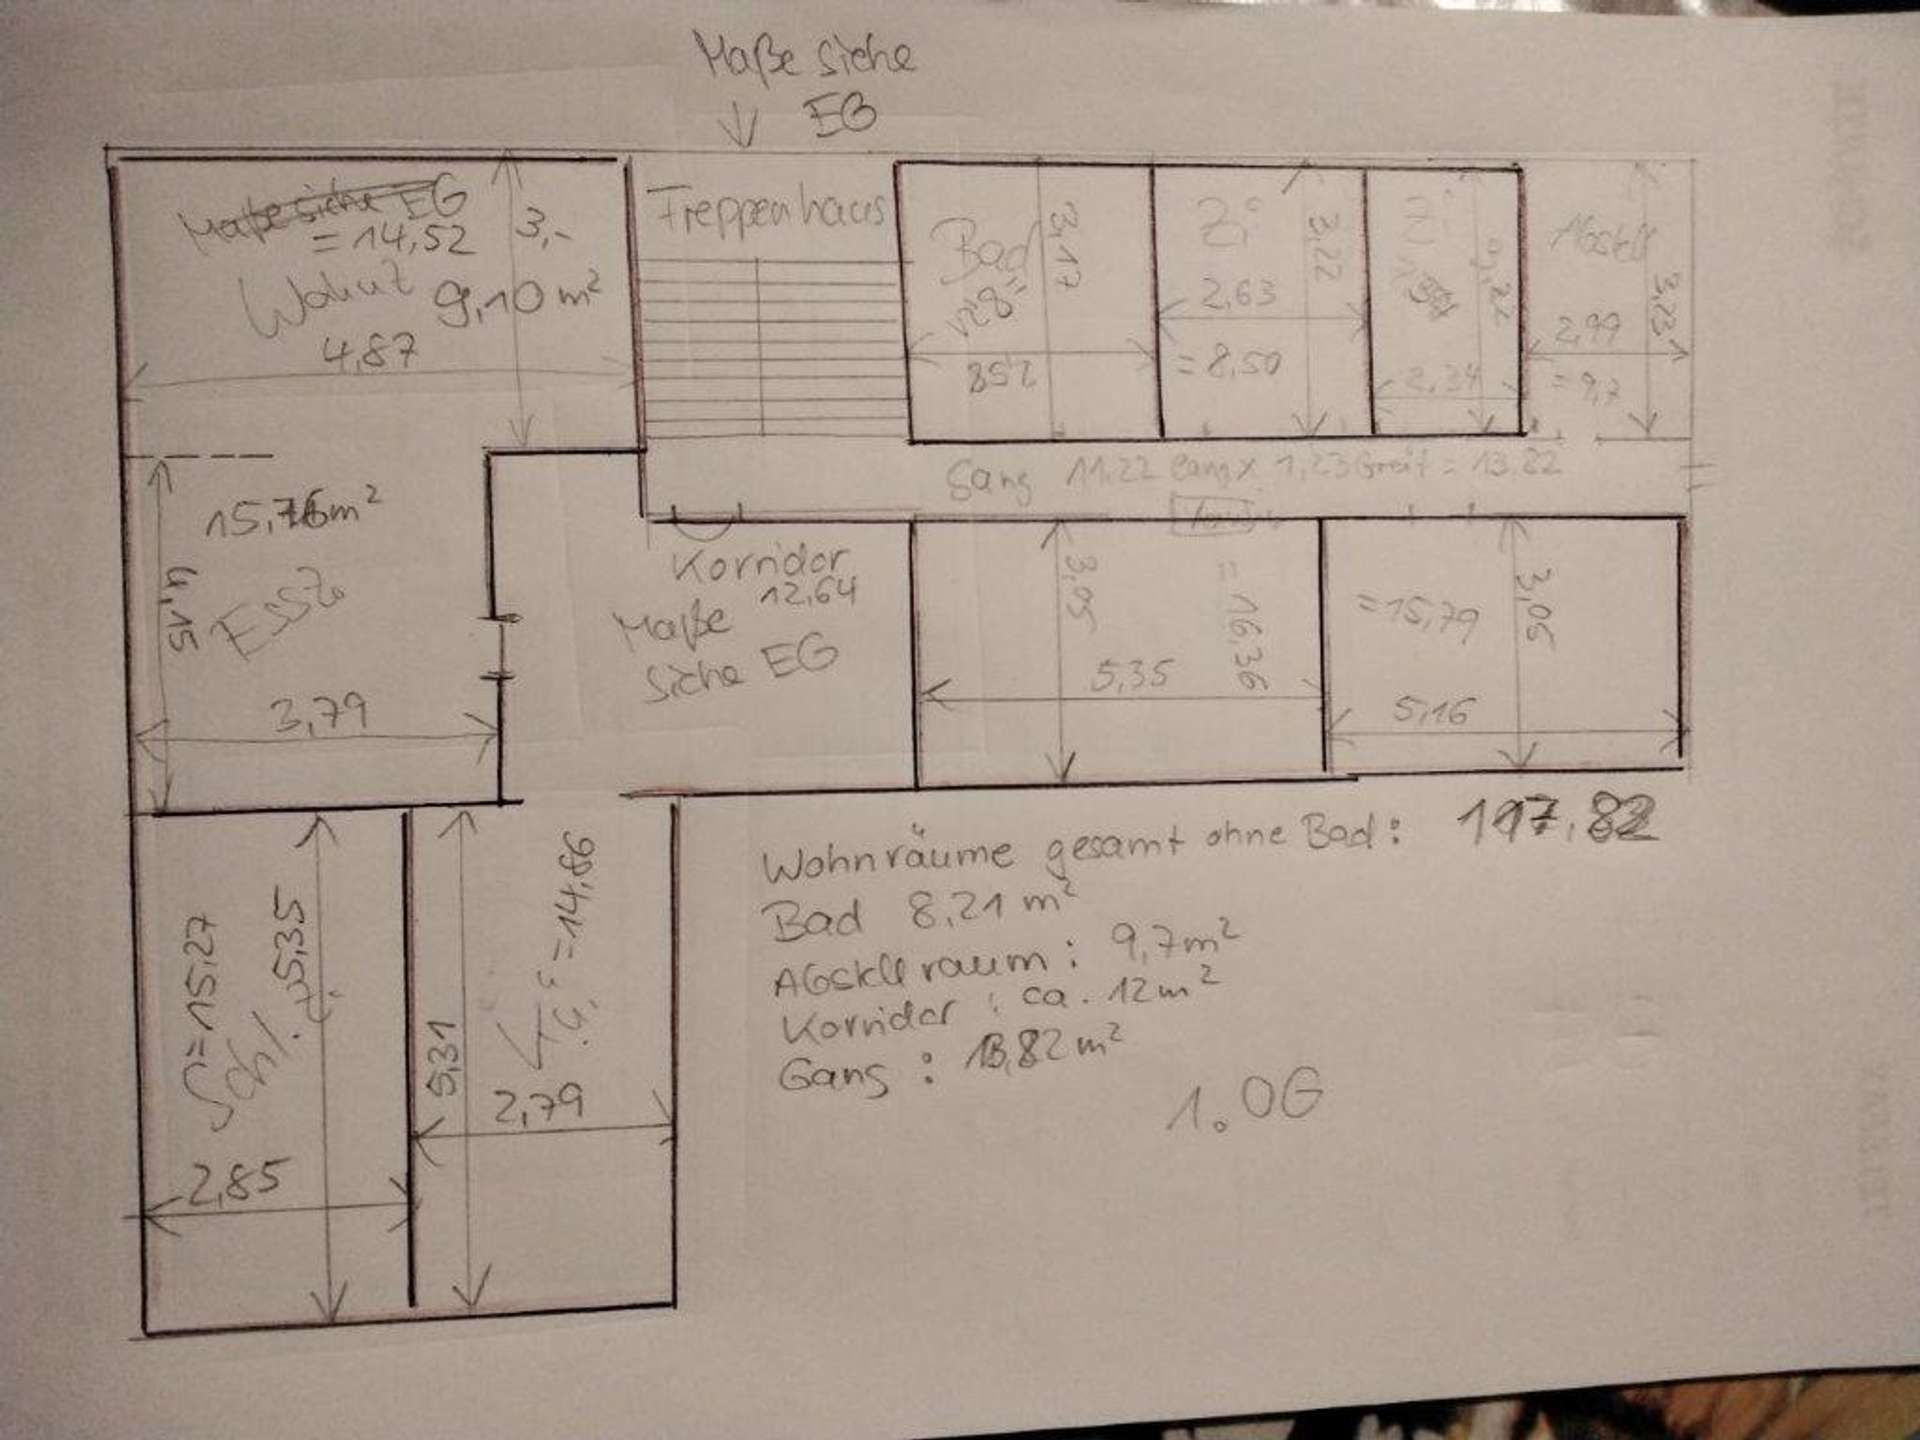 Maße siehe
EG
Maße siehe EG
= 14,52
3,-
Wohnz 9,10 m²
4,87
Treppenhaus
Bad
3,17
Zi
2,63
= 8,50
3,22
Zi
2,34
Abstell
2,99
= 9,7
3,23
Gang 11,22 lang x 1,23 breit = 13,82
15,76 m²
Essz.
4,15
3,79
Korridor
12,64
Maße
siehe EG
3,05
= 16,36
5,35
= 15,79
3,06
5,16
= 15,27
Schl.z.
5,35
2,85
5,31
= 14,86
2,79
Wohnräume gesamt ohne Bad: 117,82
Bad 8,21 m²
Abstellraum: 9,7 m²
Korridor: ca. 12 m²
Gang: 13,82 m²
1. OG